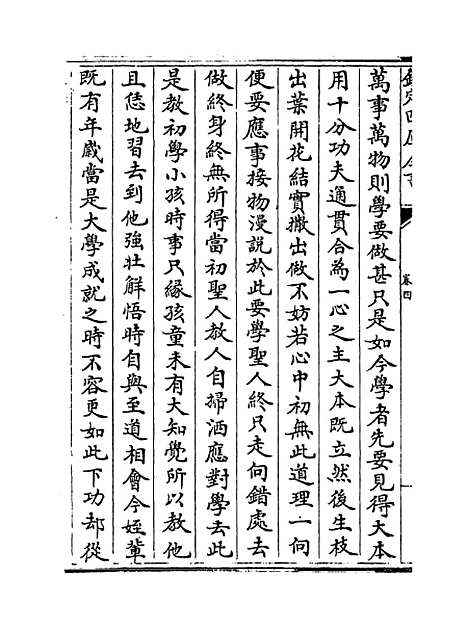 欽定四庫全書
卷四
萬事萬物則學要做甚只是如今學者先要見得大本
用十分功夫通貫合為一心之主大本既立然後生枝
出葉開花結實撒出做不妨若心中初無此道理一向
便要應事接物漫說於此要學聖人終只走向錯處去
做終身終無所得當初聖人教人自掃洒應對學去此
是教初學小孩時事只緣孩童未有大知覺所以教他
且恁地習去到他強壯解悟時自與至道相會今姪輩
既有年嵗當是大學成就之時不容更如此下功却從